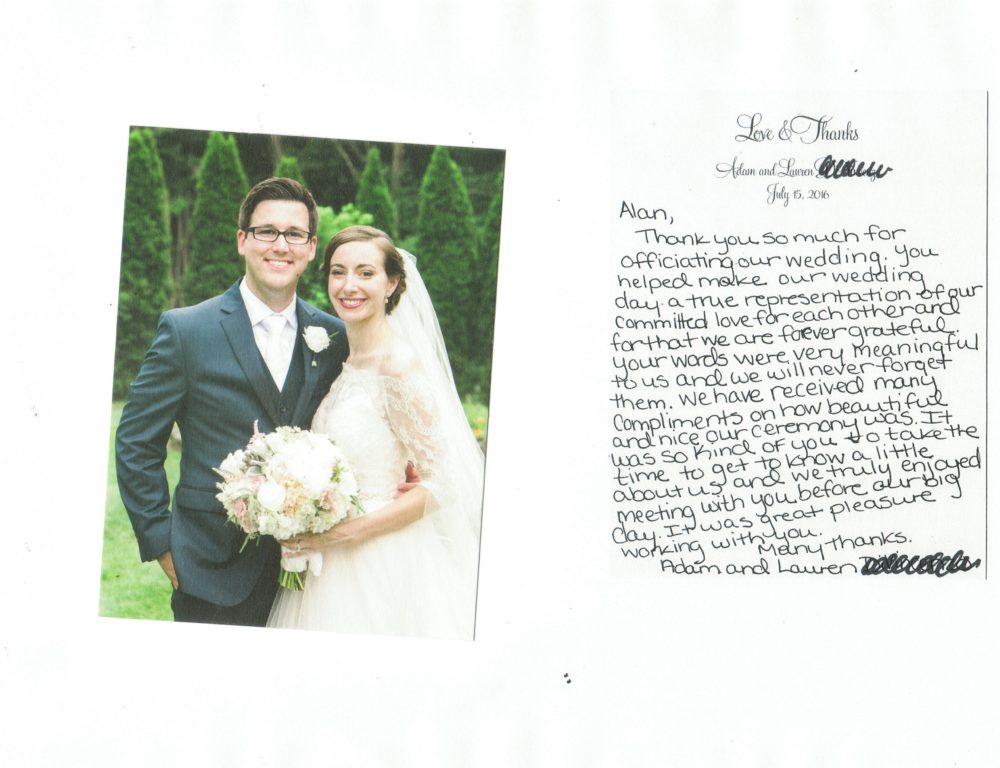 Love & Thanks
Adam and Lauren
July 15, 2016
Alan,
Thank you so much for
officiating our wedding. You
helped make our wedding
day a true representation of our
committed love for each other and
for that we are forever grateful.
Your words were very meaningful
to us and we will never forget
them. We have received many
compliments on how beautiful
and nice our ceremony was. It
was so kind of you to take the
time to get to know a little
about us and we truly enjoyed
meeting with you before our big
day. It was great pleasure
working with you.
Many thanks.
Adam and Lauren